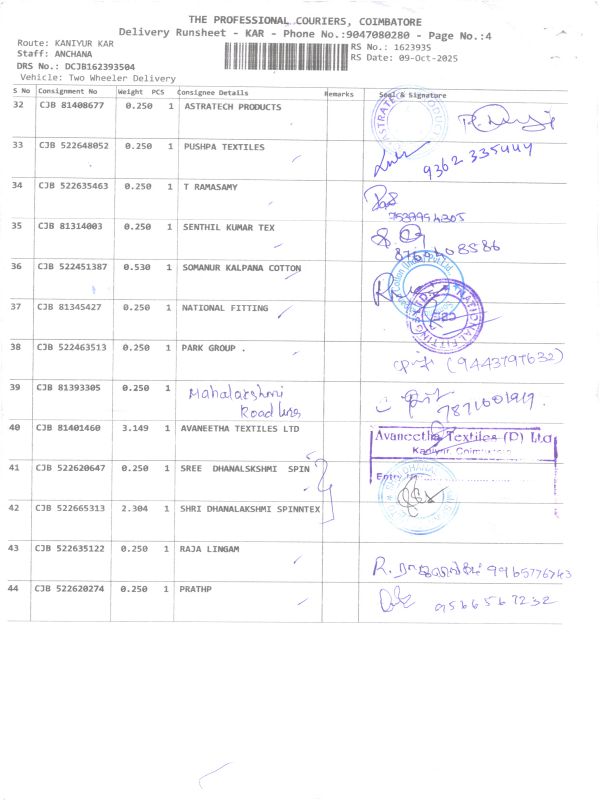 THE PROFESSIONAL COURIERS, COIMBATORE
Delivery Runsheet - KAR - Phone No.:9047080280 - Page No.:4
Route: KANIYUR KAR
RS No.: 1623935
Staff: ANCHANA
RS Date: 09-Oct-2025
DRS No.: DCJB162393504
Vehicle: Two Wheeler Delivery
S No Consignment No Weight PCS Consignee Details Remarks Seal & Signature
32 CJB 81408677 0.250 1 ASTRATECH PRODUCTS
33 CJB 522648052 0.250 1 PUSHPA TEXTILES
9362 335444
34 CJB 522635463 0.250 1 T RAMASAMY
35 CJB 81314003 0.250 1 SENTHIL KUMAR TEX
36 CJB 522451387 0.530 1 SOMANUR KALPANA COTTON
37 CJB 81345427 0.250 1 NATIONAL FITTING
NATIONAL FITTING
38 CJB 522463513 0.250 1 PARK GROUP .
(9443797632)
39 CJB 81393305 0.250 1 Mahalakshmi
Road lines
40 CJB 81401460 3.149 1 AVANEETHA TEXTILES LTD
Avaneetha Textiles (P) Ltd
Kaniyur, Coimbatore
41 CJB 522620647 0.250 1 SREE DHANALSKSHMI SPIN
42 CJB 522665313 2.304 1 SHRI DHANALAKSHMI SPINNTEX
43 CJB 522635122 0.250 1 RAJA LINGAM
9965776743
44 CJB 522620274 0.250 1 PRATHP
9566567232